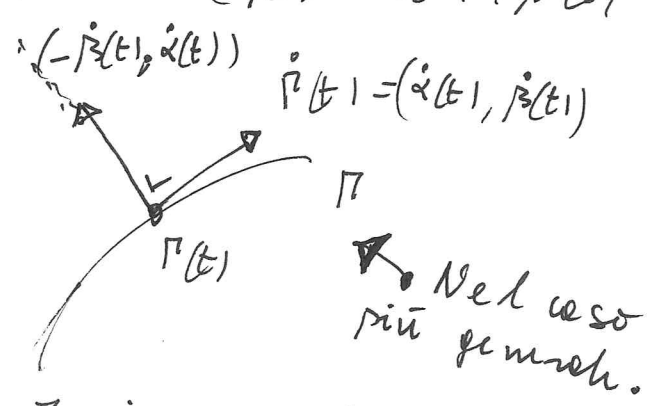 (-β̇(t), α̇(t))
Γ̇(t) = (α̇(t), β̇(t))
Γ
Γ(t)
Nel caso
più generale.